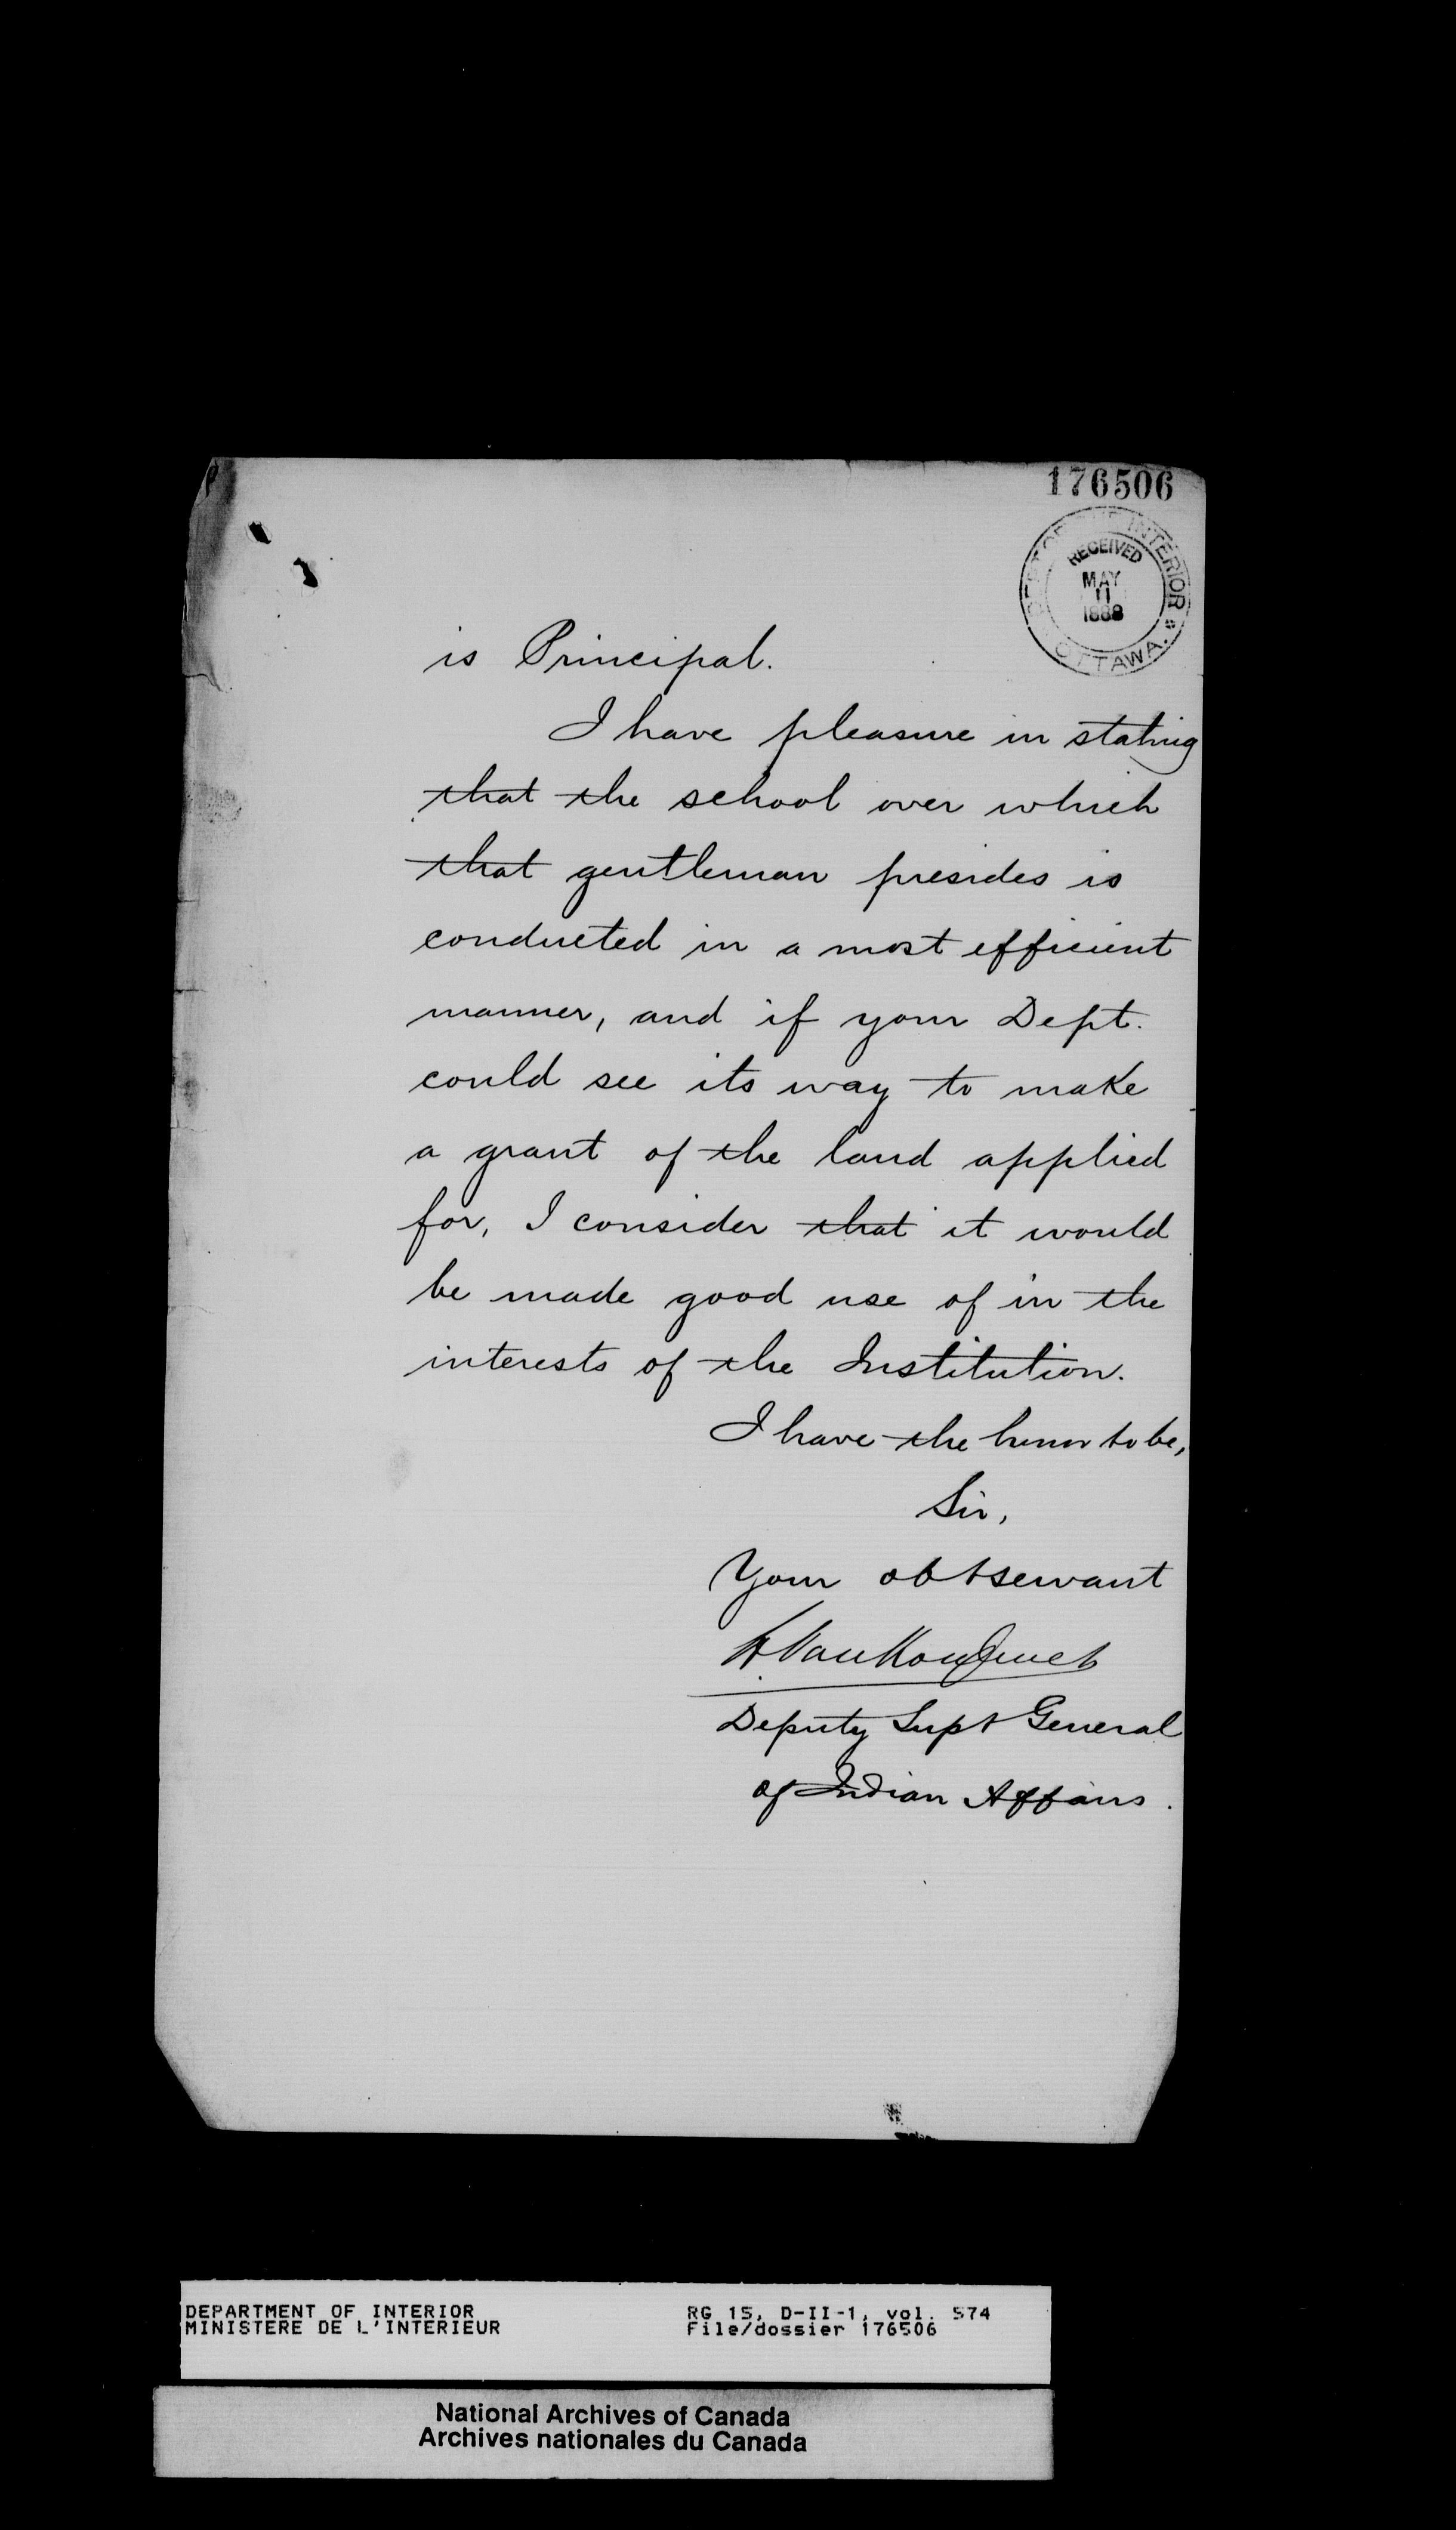 176506
DEPT OF THE INTERIOR
RECEIVED
MAY
11
1888
OTTAWA.
is Principal.
I have pleasure in stating
that the school over which
that gentleman presides is
conducted in a most efficient
manner, and if your Dept.
could see its way to make
a grant of the land applied
for, I consider that it would
be made good use of in the
interests of the Institution.
I have the honor to be,
Sir,
Your obt servant
L VanKoughnet
Deputy Supt General
of Indian Affairs.
DEPARTMENT OF INTERIOR
MINISTERE DE L'INTERIEUR
RG 15, D-II-1, vol. 574
File/dossier 176506
National Archives of Canada
Archives nationales du Canada